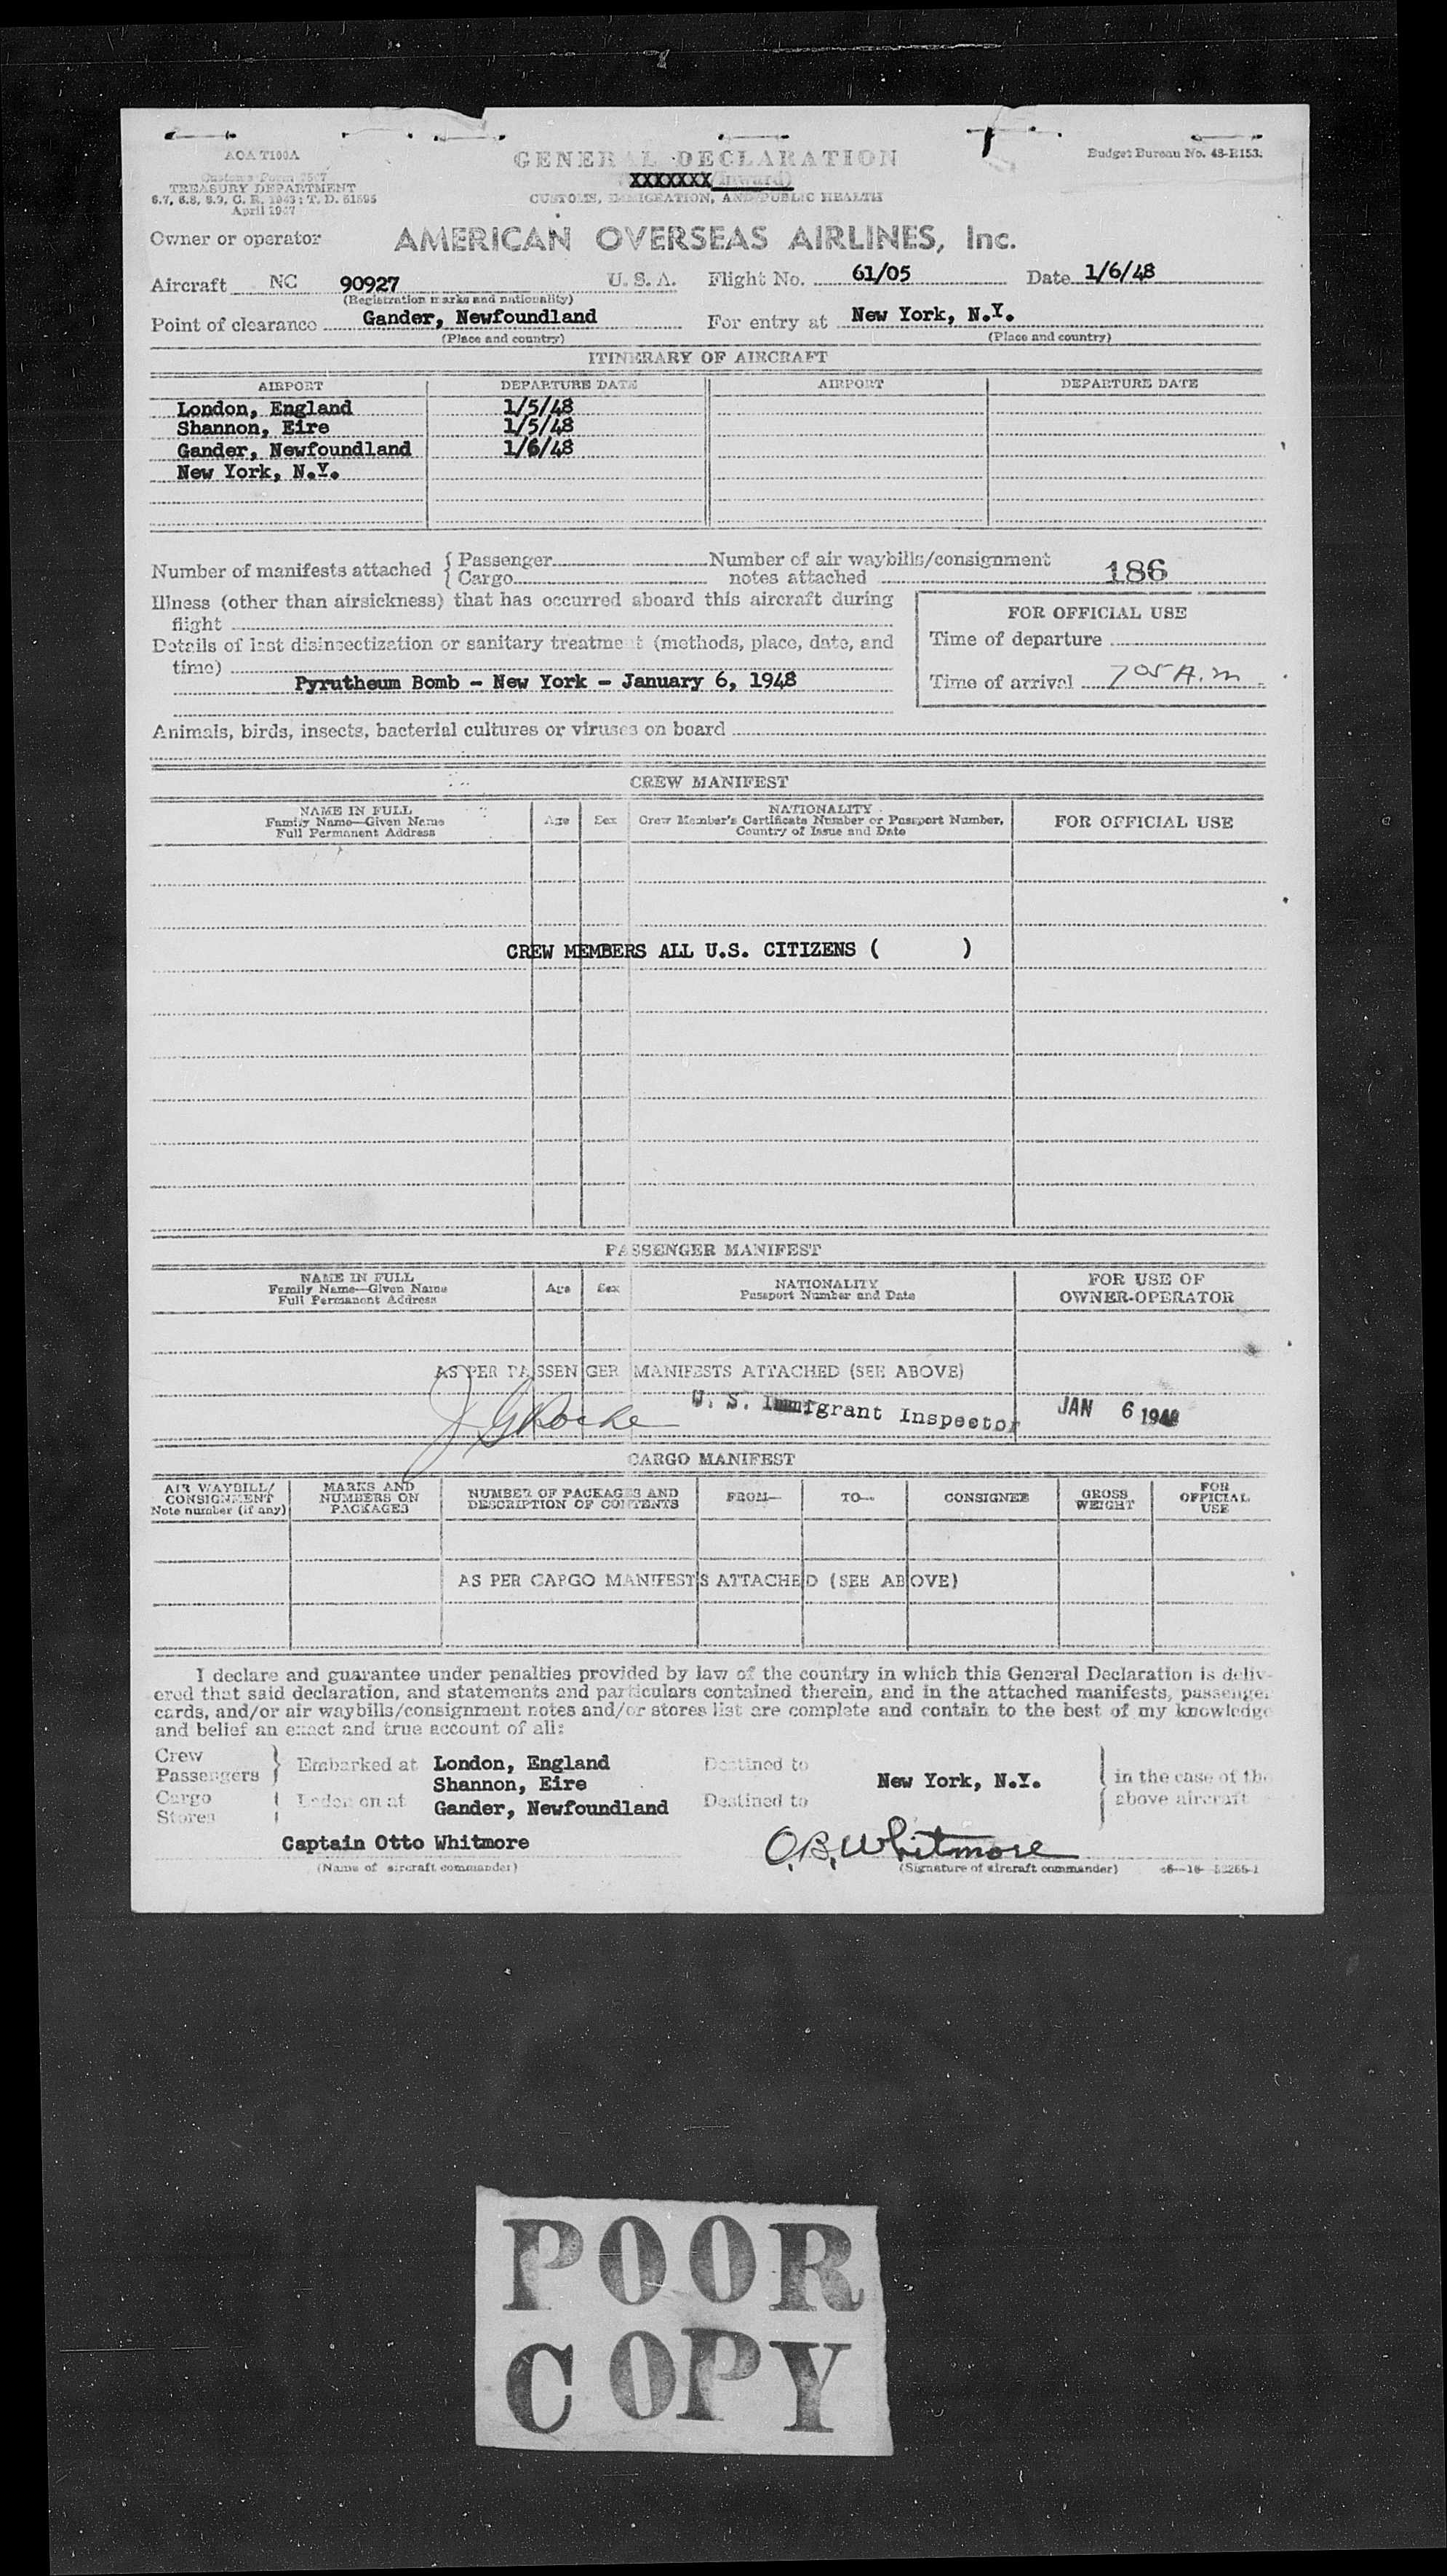 AOA T100A
GENERAL DECLARATION
Budget Bureau No. 48-R153.
Customs Form 7507
TREASURY DEPARTMENT
XXXXXXX (Inward)
6.7, 6.8, 6.9, C. R. 1943; T. D. 51595
April 1947
CUSTOMS, IMMIGRATION, AND PUBLIC HEALTH
Owner or operator AMERICAN OVERSEAS AIRLINES, Inc.
Aircraft NC 90927 U. S. A. Flight No. 61/05 Date 1/6/48
(Registration marks and nationality)
Point of clearance Gander, Newfoundland For entry at New York, N.Y.
(Place and country) (Place and country)
ITINERARY OF AIRCRAFT
AIRPORT DEPARTURE DATE AIRPORT DEPARTURE DATE
London, England 1/5/48
Shannon, Eire 1/5/48
Gander, Newfoundland 1/6/48
New York, N.Y.
Number of manifests attached { Passenger Number of air waybills/consignment
Cargo notes attached 186
Illness (other than airsickness) that has occurred aboard this aircraft during
flight
FOR OFFICIAL USE
Details of last disinsectization or sanitary treatment (methods, place, date, and
time)
Time of departure
Pyrutheum Bomb - New York - January 6, 1948
Time of arrival 705 A.m
Animals, birds, insects, bacterial cultures or viruses on board
CREW MANIFEST
NAME IN FULL
Family Name—Given Name
Full Permanent Address
Age Sex
NATIONALITY
Crew Member's Certificate Number or Passport Number,
Country of Issue and Date
FOR OFFICIAL USE
CREW MEMBERS ALL U.S. CITIZENS ( )
PASSENGER MANIFEST
NAME IN FULL
Family Name—Given Name
Full Permanent Address
Age Sex
NATIONALITY
Passport Number and Date
FOR USE OF
OWNER-OPERATOR
AS PER PASSENGER MANIFESTS ATTACHED (SEE ABOVE)
U. S. Immigrant Inspector JAN 6 1948
CARGO MANIFEST
AIR WAYBILL/
CONSIGNMENT
Note number (if any)
MARKS AND
NUMBERS ON
PACKAGES
NUMBER OF PACKAGES AND
DESCRIPTION OF CONTENTS
FROM—
TO—
CONSIGNEE
GROSS
WEIGHT
FOR
OFFICIAL
USE
AS PER CARGO MANIFESTS ATTACHED (SEE ABOVE)
I declare and guarantee under penalties provided by law of the country in which this General Declaration is deliv-
ered that said declaration, and statements and particulars contained therein, and in the attached manifests, passenger
cards, and/or air waybills/consignment notes and/or stores list are complete and contain to the best of my knowledge
and belief an exact and true account of all:
Crew
Passengers } Embarked at London, England Destined to
Shannon, Eire New York, N.Y. in the case of the
Cargo Laden on at Gander, Newfoundland Destined to above aircraft
Stores
Captain Otto Whitmore O.B. Whitmore
(Name of aircraft commander) (Signature of aircraft commander)
POOR
COPY